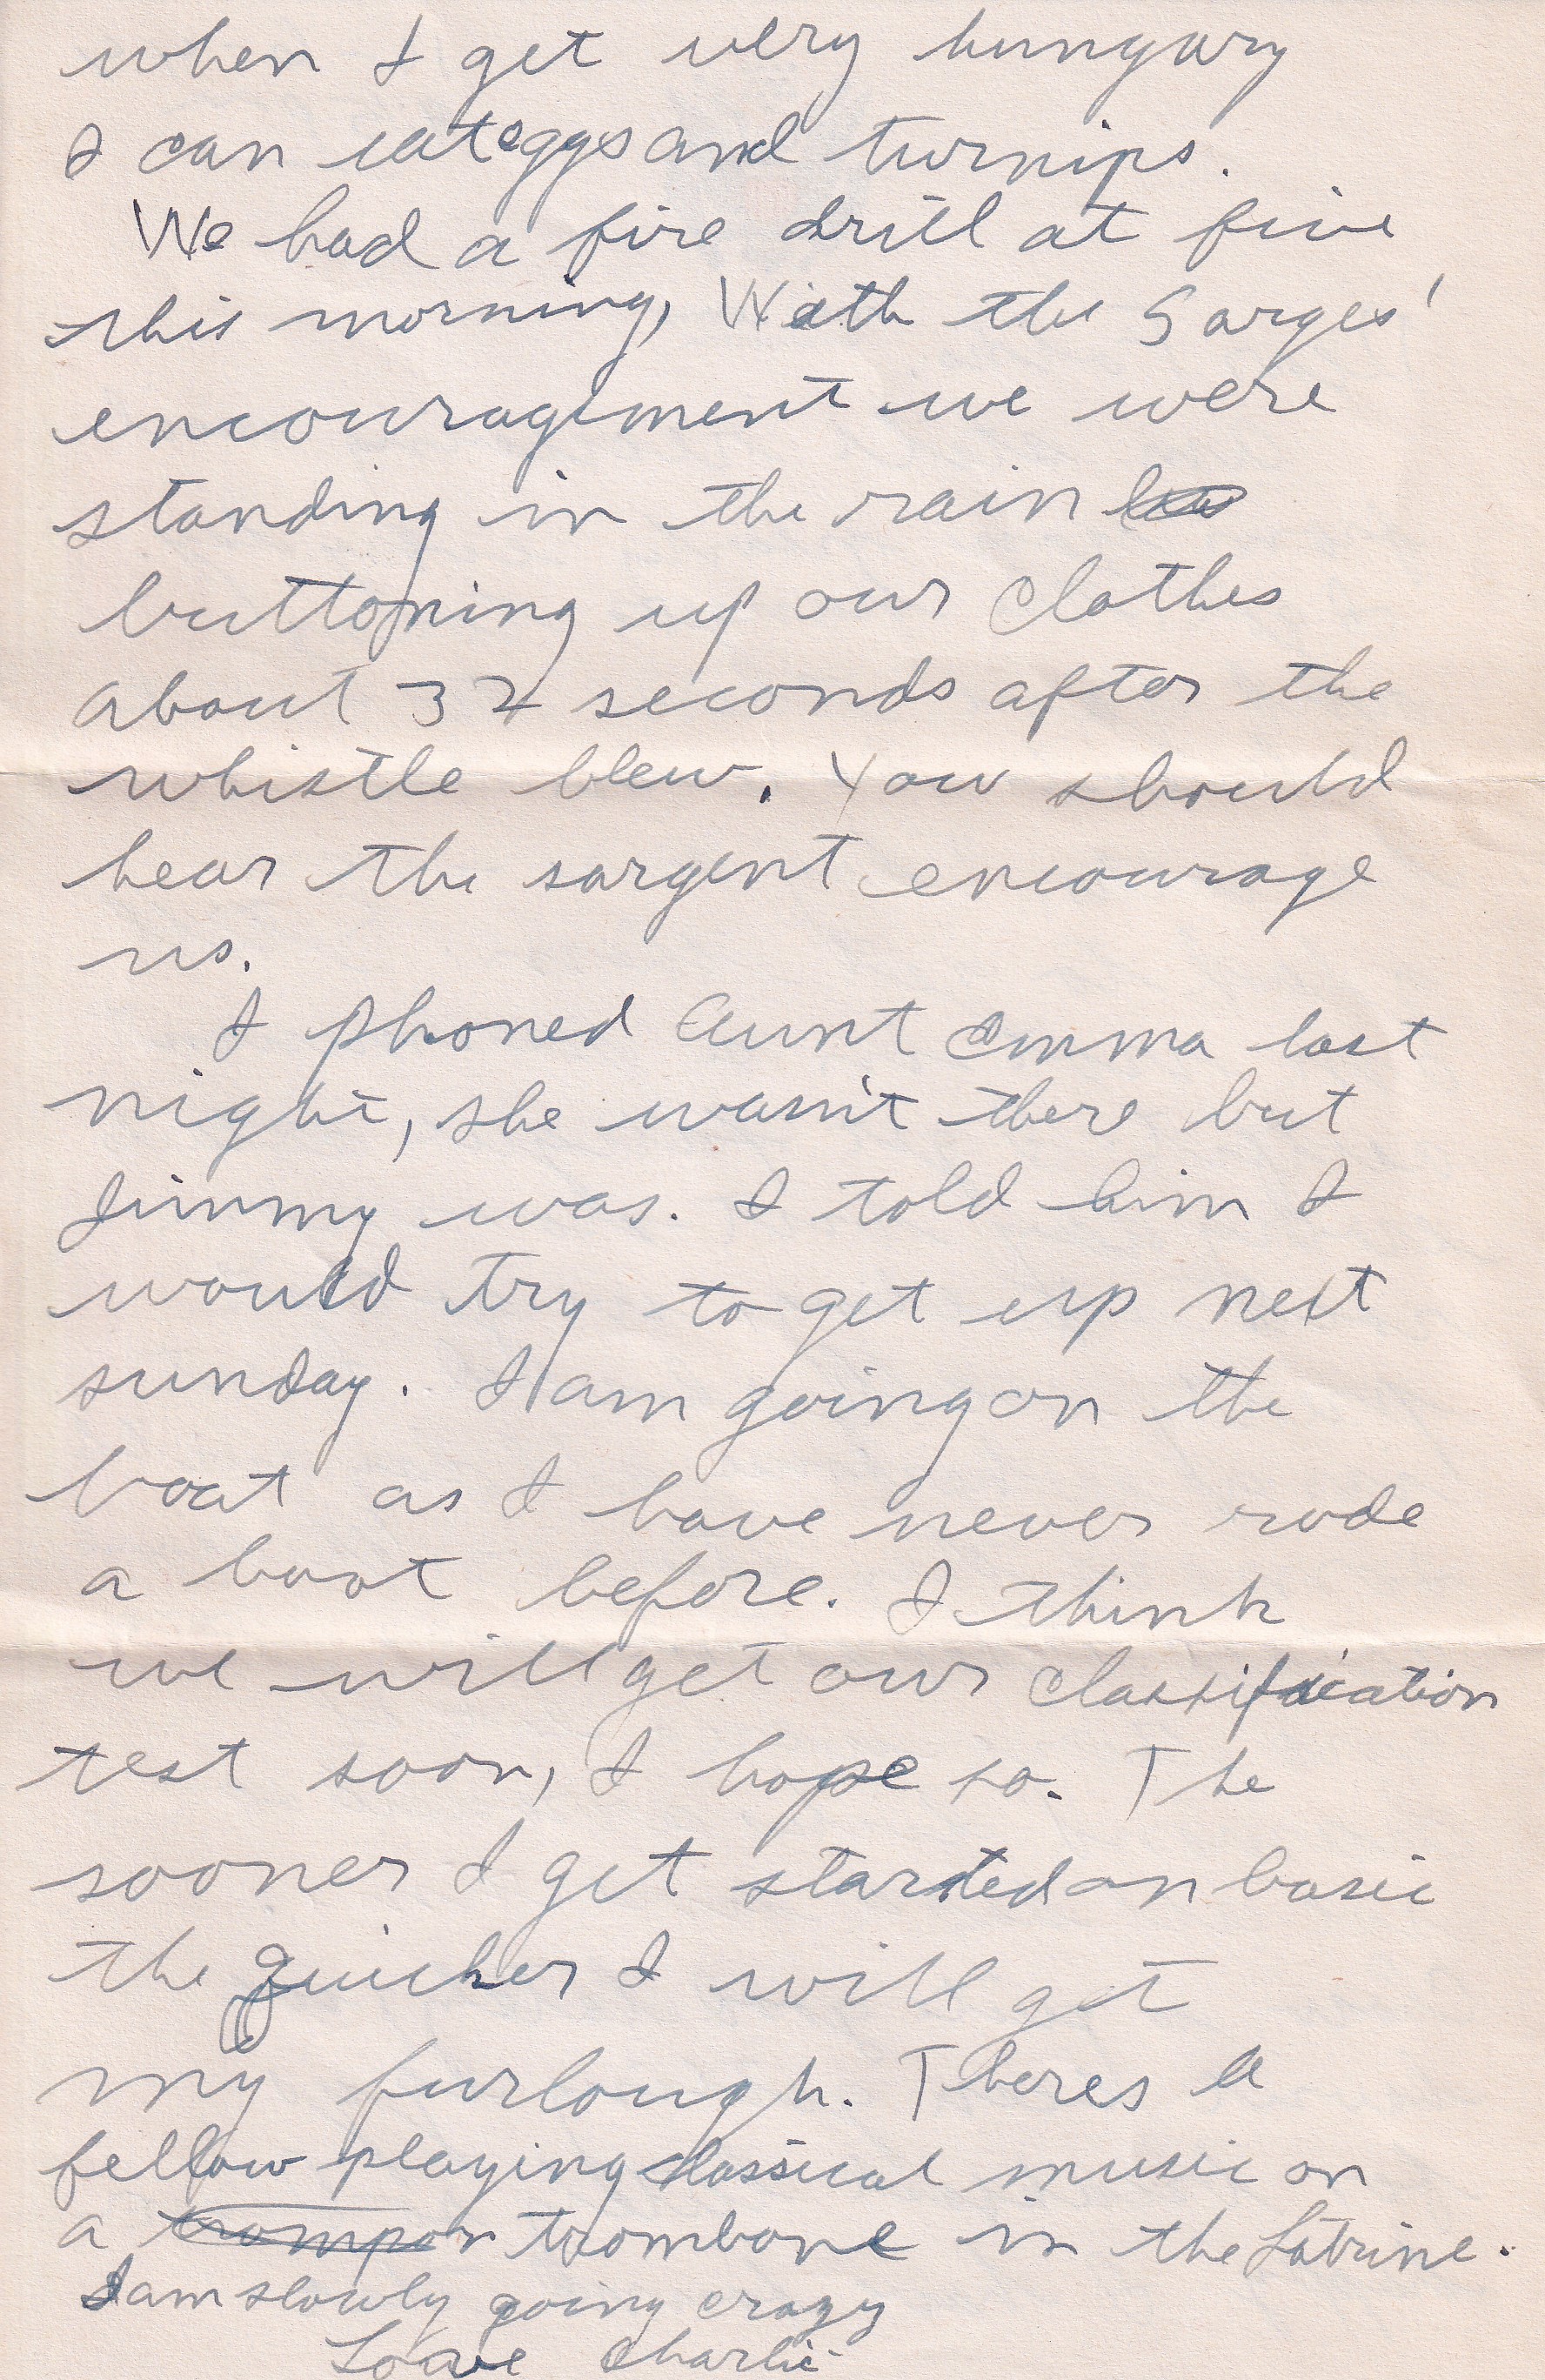 when I get very hungary
I can eat eggs and turnips.
We had a fire drill at five
this morning, With the Sarges'
encouragement we were
standing in the rain
buttoning up our clothes
about 32 seconds after the
whistle blew. You should
hear the sargent encourage
us.
I phoned Aunt Emma last
night, she wasn't there but
Jimmy was. I told him I
would try to get up next
sunday. I am going on the
boat as I have never rode
a boat before. I think
we will get our classification
test soon, I hope so. The
sooner I get started on basic
the quicker I will get
my furlough. Theres a
fellow playing classical music on
a trombone in the Latrine.
I am slowly going crazy
Love Charlie